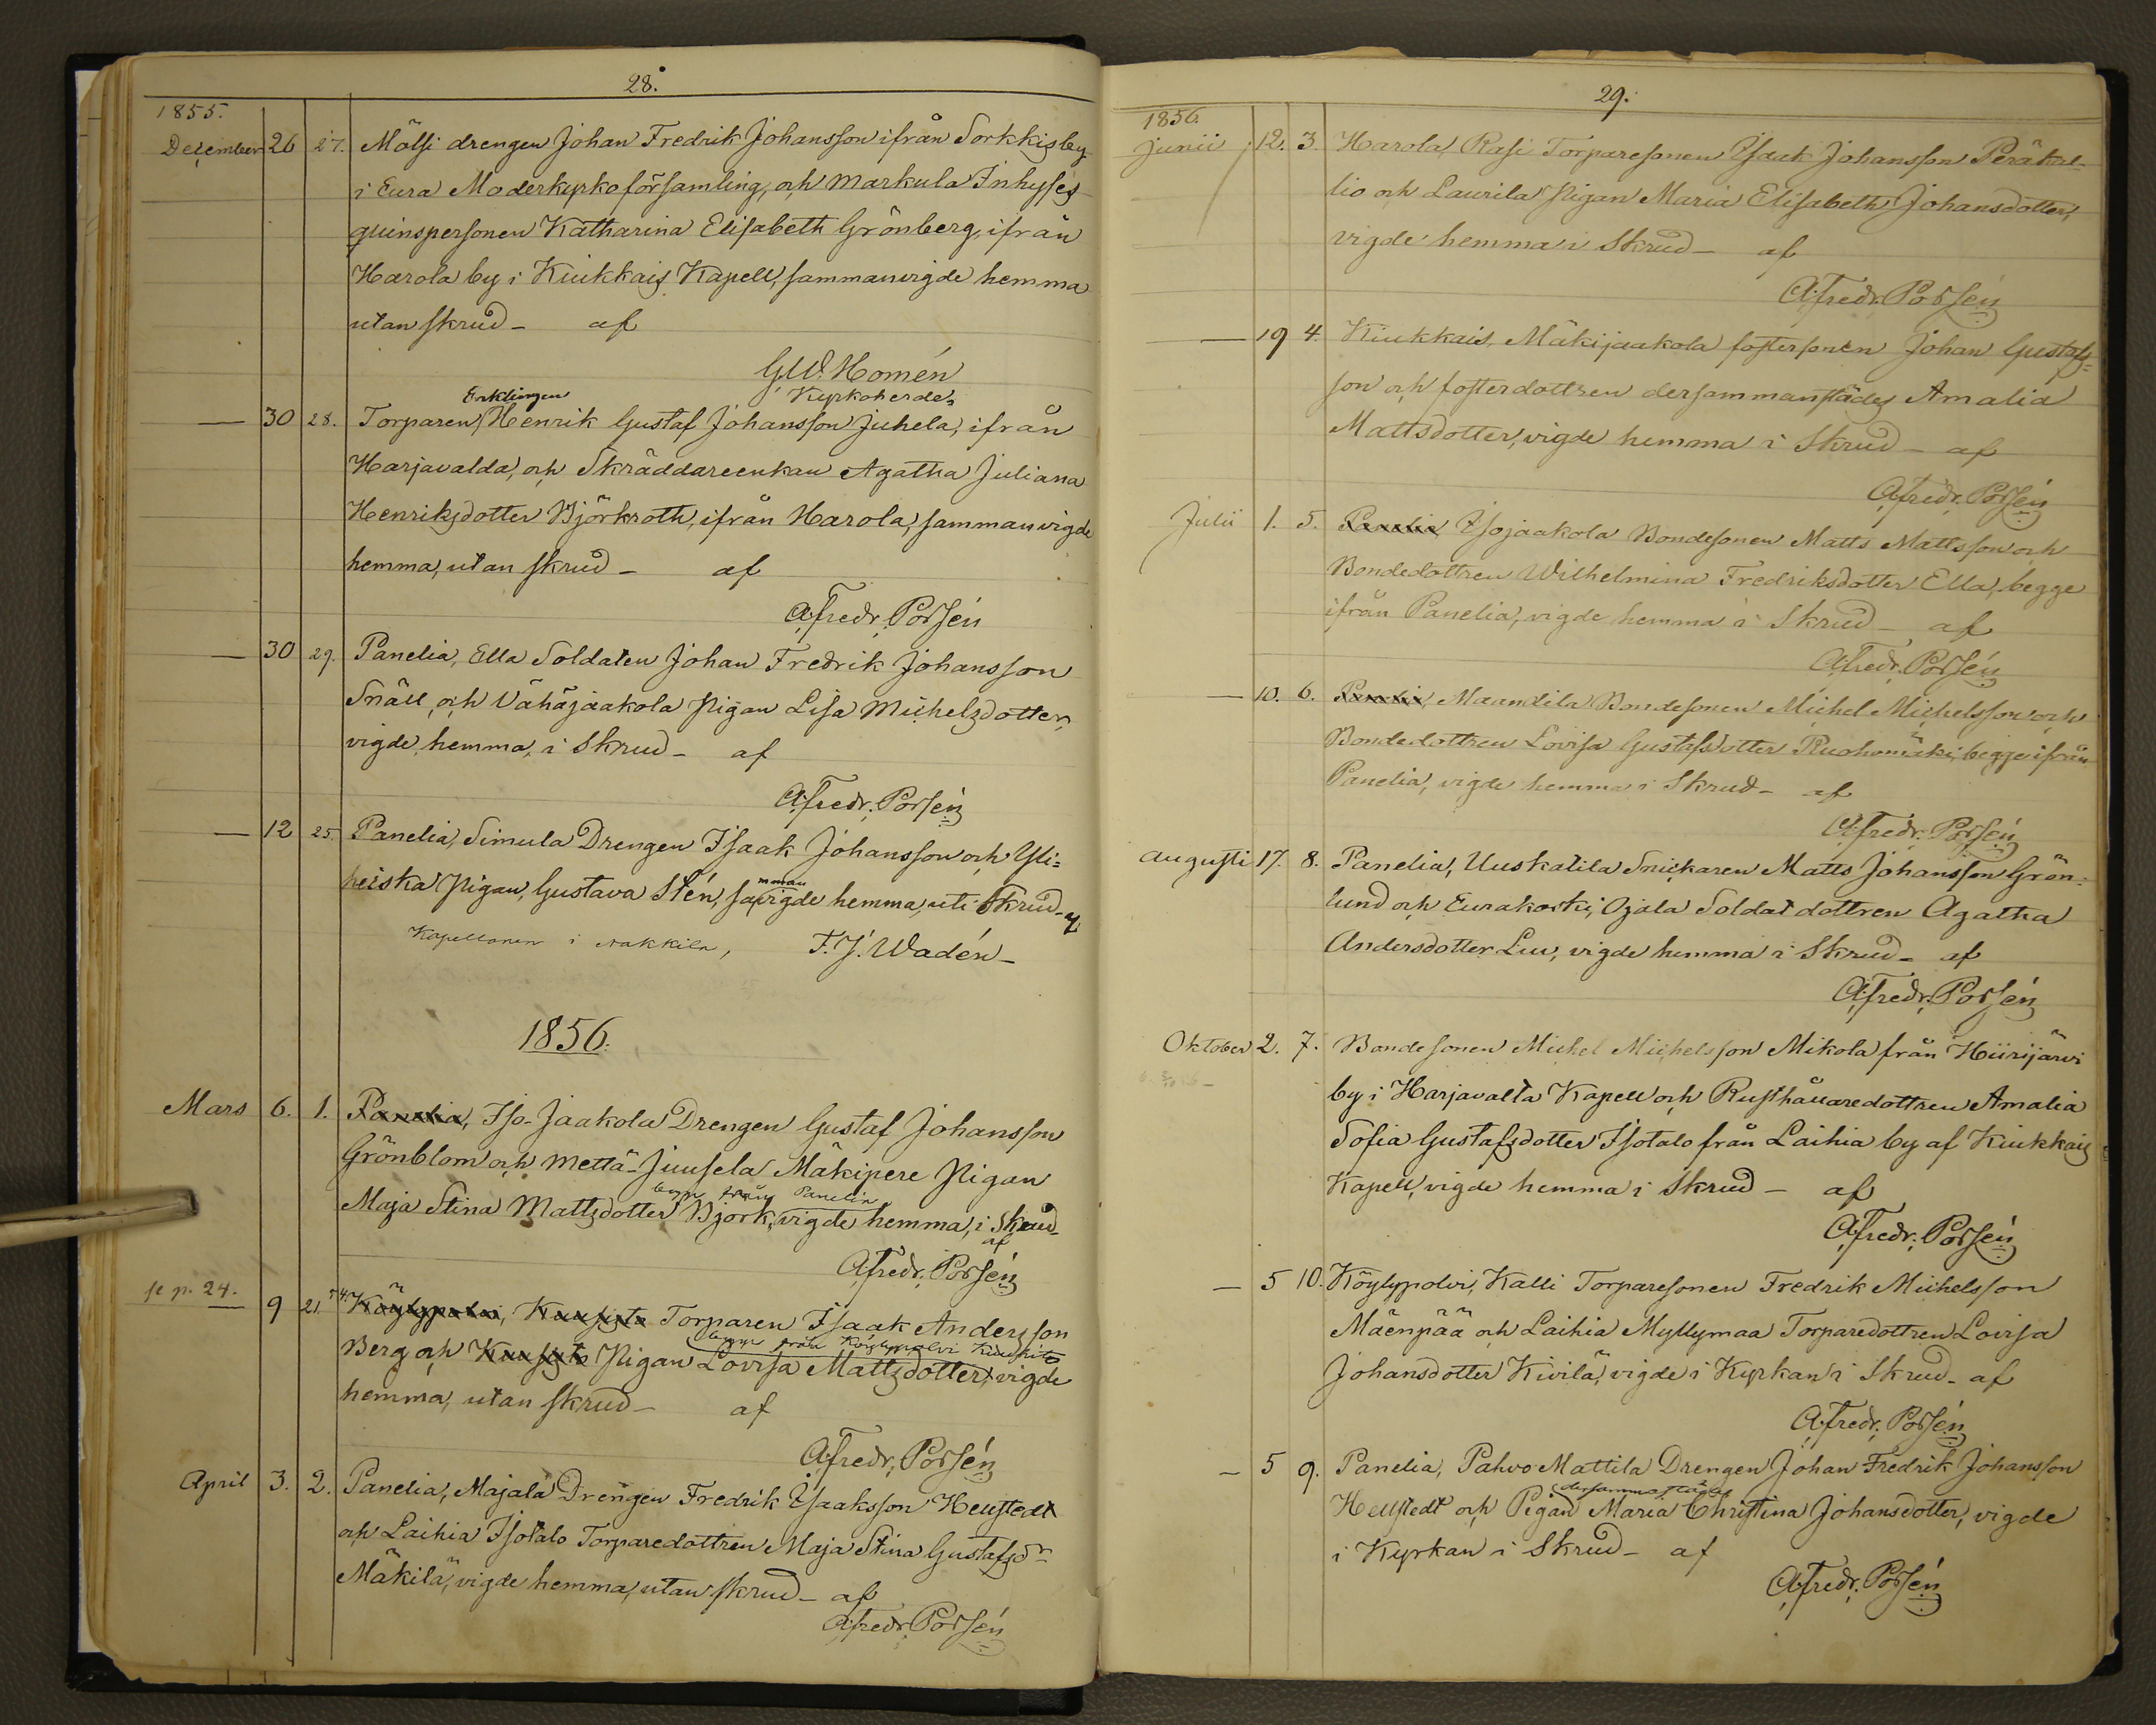 28.
1855.
December 26 27. Mälsi drengen Johan Fredrik Johansson ifrån Sorkkis by
i Eura Moderkyrkoförsamling, och Markula Inhyses
quinspersonen Katharina Elisabeth Grönberg, ifrån
Harola by i Kiukkais Kapell, sammanvigde hemma
utan skrud - af
G.W. Homén
Kyrkoherde
Enklingen
— 30 28. Torparen Henrik Gustaf Johansson Juhela, ifrån
Harjavalda, och Skräddareenkan Agatha Juliana
Henriksdotter Björkroth, ifrån Harola, sammanvigde
hemma, utan skrud - af
A. Fredr. Porsén
— 30 29. Panelia, Ella Soldaten Johan Fredrik Johansson
Snäll, och Vähäjaakola Pigan Lisa Michelsdotter,
vigde, hemma, i Skrud - af
A. Fredr. Porsén
— 12 25. Panelia, Simula Drengen Isaak Johansson och Yli=
mman
heiska Pigan, Gustava Stén, savigde hemma, uti Skrud - af
Kapellanen i Nakkila, F. J. Wadén -
1856.
Mars 6. 1. Panelia, Iso-Jaakola Drengen Gustaf Johansson
Grönblom och Mettä-Juusela Mäkipere Pigan
begge från Panelia
Maja Stina Mattsdotter Björk, vigde hemma, i Skrud -
af
A. Fredr. Porsén
se p. 24.
— 9 21. Köylypolvi, Torparen Isaak Andersson
begge från Köylypolvi
Berg och Pigan Lovisa Mattsdotter, vigde
hemma, utan skrud - af
A. Fredr. Porsén
April 3. 2. Panelia, Majala Drengen Fredrik Isaaksson Hellstedt
och Laihia Isotalo Torparedottren Maja Stina Gustafsdr
Mäkilä, vigde hemma, utan skrud - af
A. Fredr. Porsén
29.
1856
Junii 12. 3. Harola, Rasi Torparesonen Isaak Johansson Peräkal-
lio och Laurila Pigan Maria Elisabeth Johansdotter,
vigde hemma i Skrud - af
A. Fredr. Porsén
— 19 4. Kiukkais, Mäkijaakola fostersonen Johan Gustafs=
son och fosterdottren dersammanstädes Amalia
Mattsdotter, vigde hemma i Skrud - af
A. Fredr. Porsén
Julii 1. 5. Panelia Isojaakola Bondesonen Matts Mattsson och
Bondedottren Wilhelmina Fredriksdotter Ella, begge
ifrån Panelia, vigde hemma i Skrud - af
A. Fredr. Porsén
— 10. 6. Panelia, Maundila Bondesonen Michel Michelsson och
Bondedottren Lovisa Gustafsdotter Ruohomäki, begge ifrån
Panelia, vigde hemma i Skrud - af
A. Fredr. Porsén
Augusti 17. 8. Panelia, Uuskatila Snickaren Matts Johansson Grön=
lund och Eurakoski, Ojala Soldatdottren Agatha
Andersdotter Luu, vigde hemma i Skrud - af
A. Fredr. Porsén
Oktober 2. 7. Bondesonen Michel Michelsson Mikola från Hiirijärvi
by i Harjavalta Kapell och Rusthållaredottren Amalia
Sofia Gustafsdotter Isotalo från Laihia by af Kiukkais
Kapell, vigde hemma i Skrud - af
A. Fredr. Porsén
— 5 10. Köylypolvi, Kalli Torparesonen Fredrik Michelsson
Mäenpää och Laihia Myllymaa Torparedottren Lovisa
Johansdotter Kivilä, vigde i Kyrkan i Skrud - af
A. Fredr. Porsén
— 5 9. Panelia, Pahvo-Mattila Drengen Johan Fredrik Johansson
dersammastädes
Hellstedt och Pigan Maria Christina Johansdotter, vigde
i Kyrkan i Skrud - af
A. Fredr. Porsén